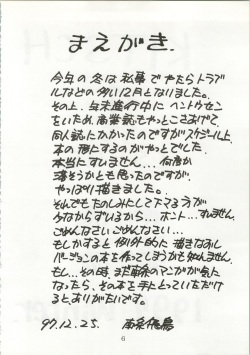 まえがき.
今年の冬は私事でやたらトラブ
ルなどの多い12月となりました。
その上、年末進行中にヘントウセン
をいため、商業誌もやっとこさあげて、
同人誌にかかったのですがスケジュール上、
本の形にするのがやっとでした。
本当にすびません…何度か
落そうかとも思ったのですが、
やっぱり描きました。
それでもたのしみにして下さる方が
少なからずいるから…ホント…すびません。
ごめんなさいごめんなさい…
もしかすると例外的に描きなおし
バージョンの本を作ってしまうかも知れません。
もし…その時、まだ南条のマンガが気に
なったら、その本を手にとっていただけ
るとありがたいです。
97.12.25. 南条飛鳥
6